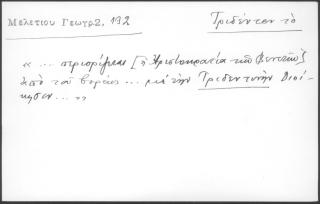 Μελετίου Γεωγρ. 192
Τριδέντον τὸ
« ... περιορίζεται [ἡ Ἀριστοκρατία τῶν Βενετῶν]
ἀπὸ τοῦ βορείου ... μὲ τὴν Τριδεντινὴν Διοί-
κησιν ... »